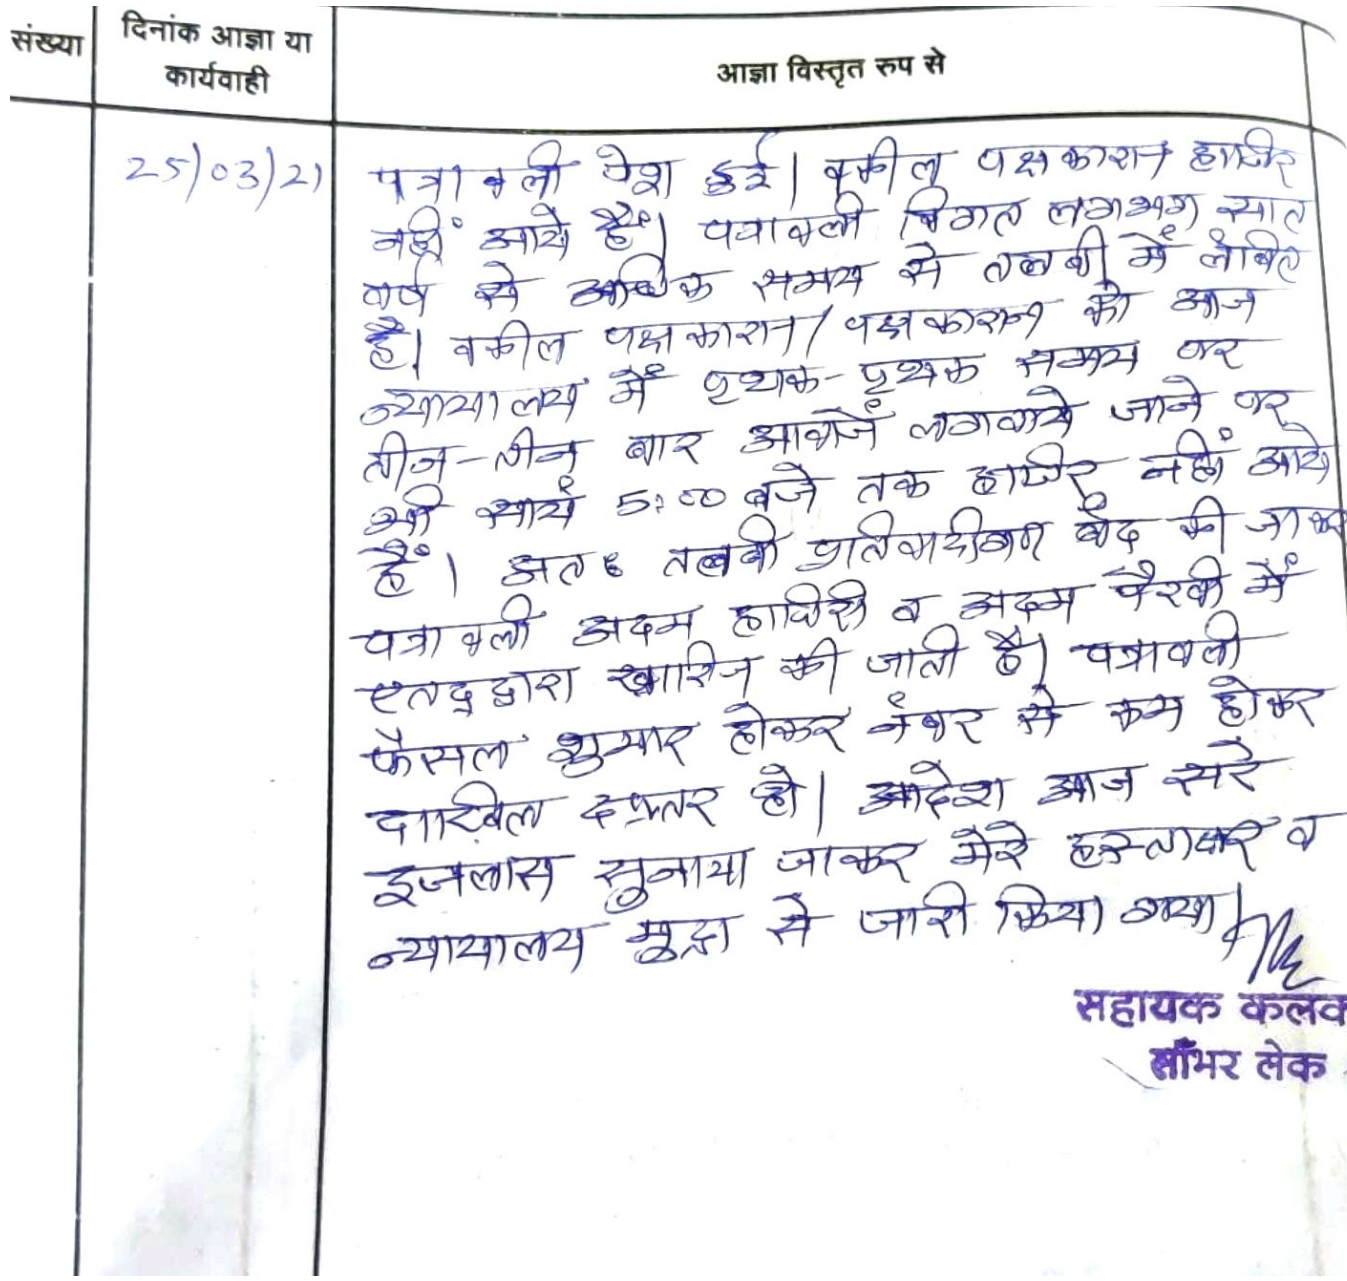 संख्या
दिनांक आज्ञा या
कार्यवाही
आज्ञा विस्तृत रुप से
25/03/21
पत्रावली पेश हुई। वकील पक्षकारान हाजिर
नहीं आये हैं। पत्रावली विगत लगभग सात
वर्ष से अधिक समय से तलबी में लंबित
है। वकील पक्षकारान/पक्षकारान को आज
न्यायालय में पृथक-पृथक समय पर
तीन-तीन बार आवाजें लगवाये जाने पर
भी सायं 5:00 बजे तक हाजिर नहीं आये
हैं। अतः तलबी प्रतिवादीगण बंद की जाकर
पत्रावली अदम हाजिरी व अदम पैरवी में
एतद्द्वारा खारिज की जाती है। पत्रावली
फैसल शुमार होकर नंबर से कम होकर
दाखिल दफ्तर हो। आदेश आज सरे
इजलास सुनाया जाकर मेरे हस्ताक्षर व
न्यायालय मुद्रा से जारी किया गया।
सहायक कलक
साँभर लेक